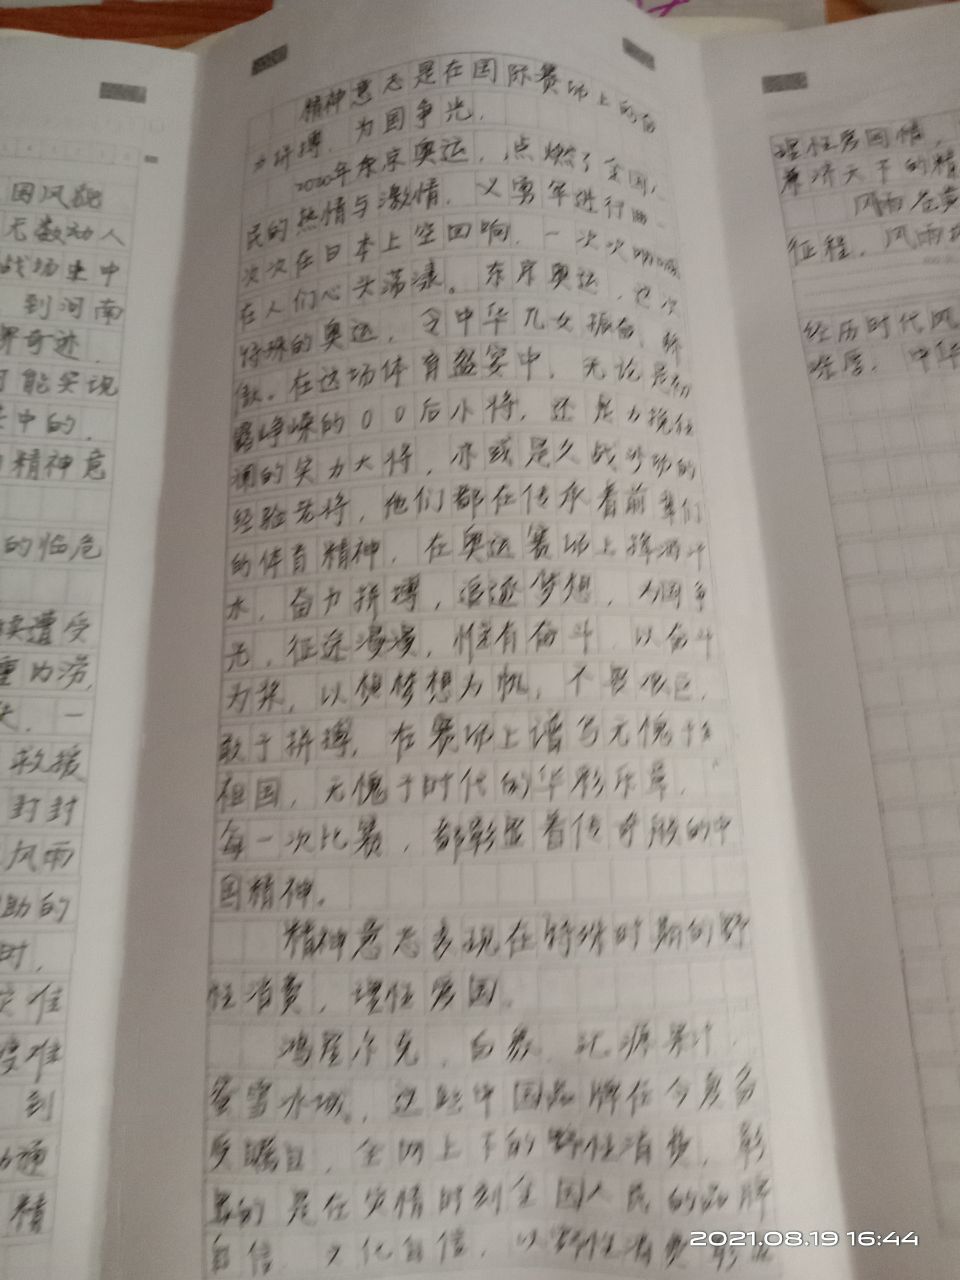 因风
无数动人
战场史中
到河南
奇迹.
可能实现
中的.
精神意
的临危
续遭受
一
救援
封封
风雨
助的
时,
难
到
精
精神意志是在国际赛场上的奋
力拼搏,为国争光.
2020年东京奥运,点燃了全国人
民的热情与激情.义勇军进行曲一
次次在日本上空回响.一次次
在人们心头荡漾。东京奥运,
特殊的奥运,令中华儿女振奋、骄
傲。在这场体育盛宴中,无论是初
露峥嵘的00后小将,还是力挽狂
澜的实力大将,亦或是久战沙场的
经验老将,他们都在传承着前辈们
的体育精神,在奥运赛场上挥洒汗
水,奋力拼搏,追逐梦想,为国争
光,征途漫漫,惟有奋斗.以奋斗
为桨,以梦想为帆,不畏
敢于拼搏,在赛场上谱写无愧于
祖国,无愧于时代的华彩乐章.
每一次比赛,都彰显着传奇般的中
国精神.
精神意志表现在特殊时期的野
性消费,理性爱国。
鸿星尔克,白象,汇源果汁,
蜜雪冰城。这些中国品牌在今夏备
受瞩目,全网上下的野性消费,彰
显的是在灾情时刻全国人民的品牌
自信.文化自信.以野性消费彰显
理性爱国情,
兼济天下的精
风雨
征程,风雨
经历时代风
难,中华
2021.08.19 16:44